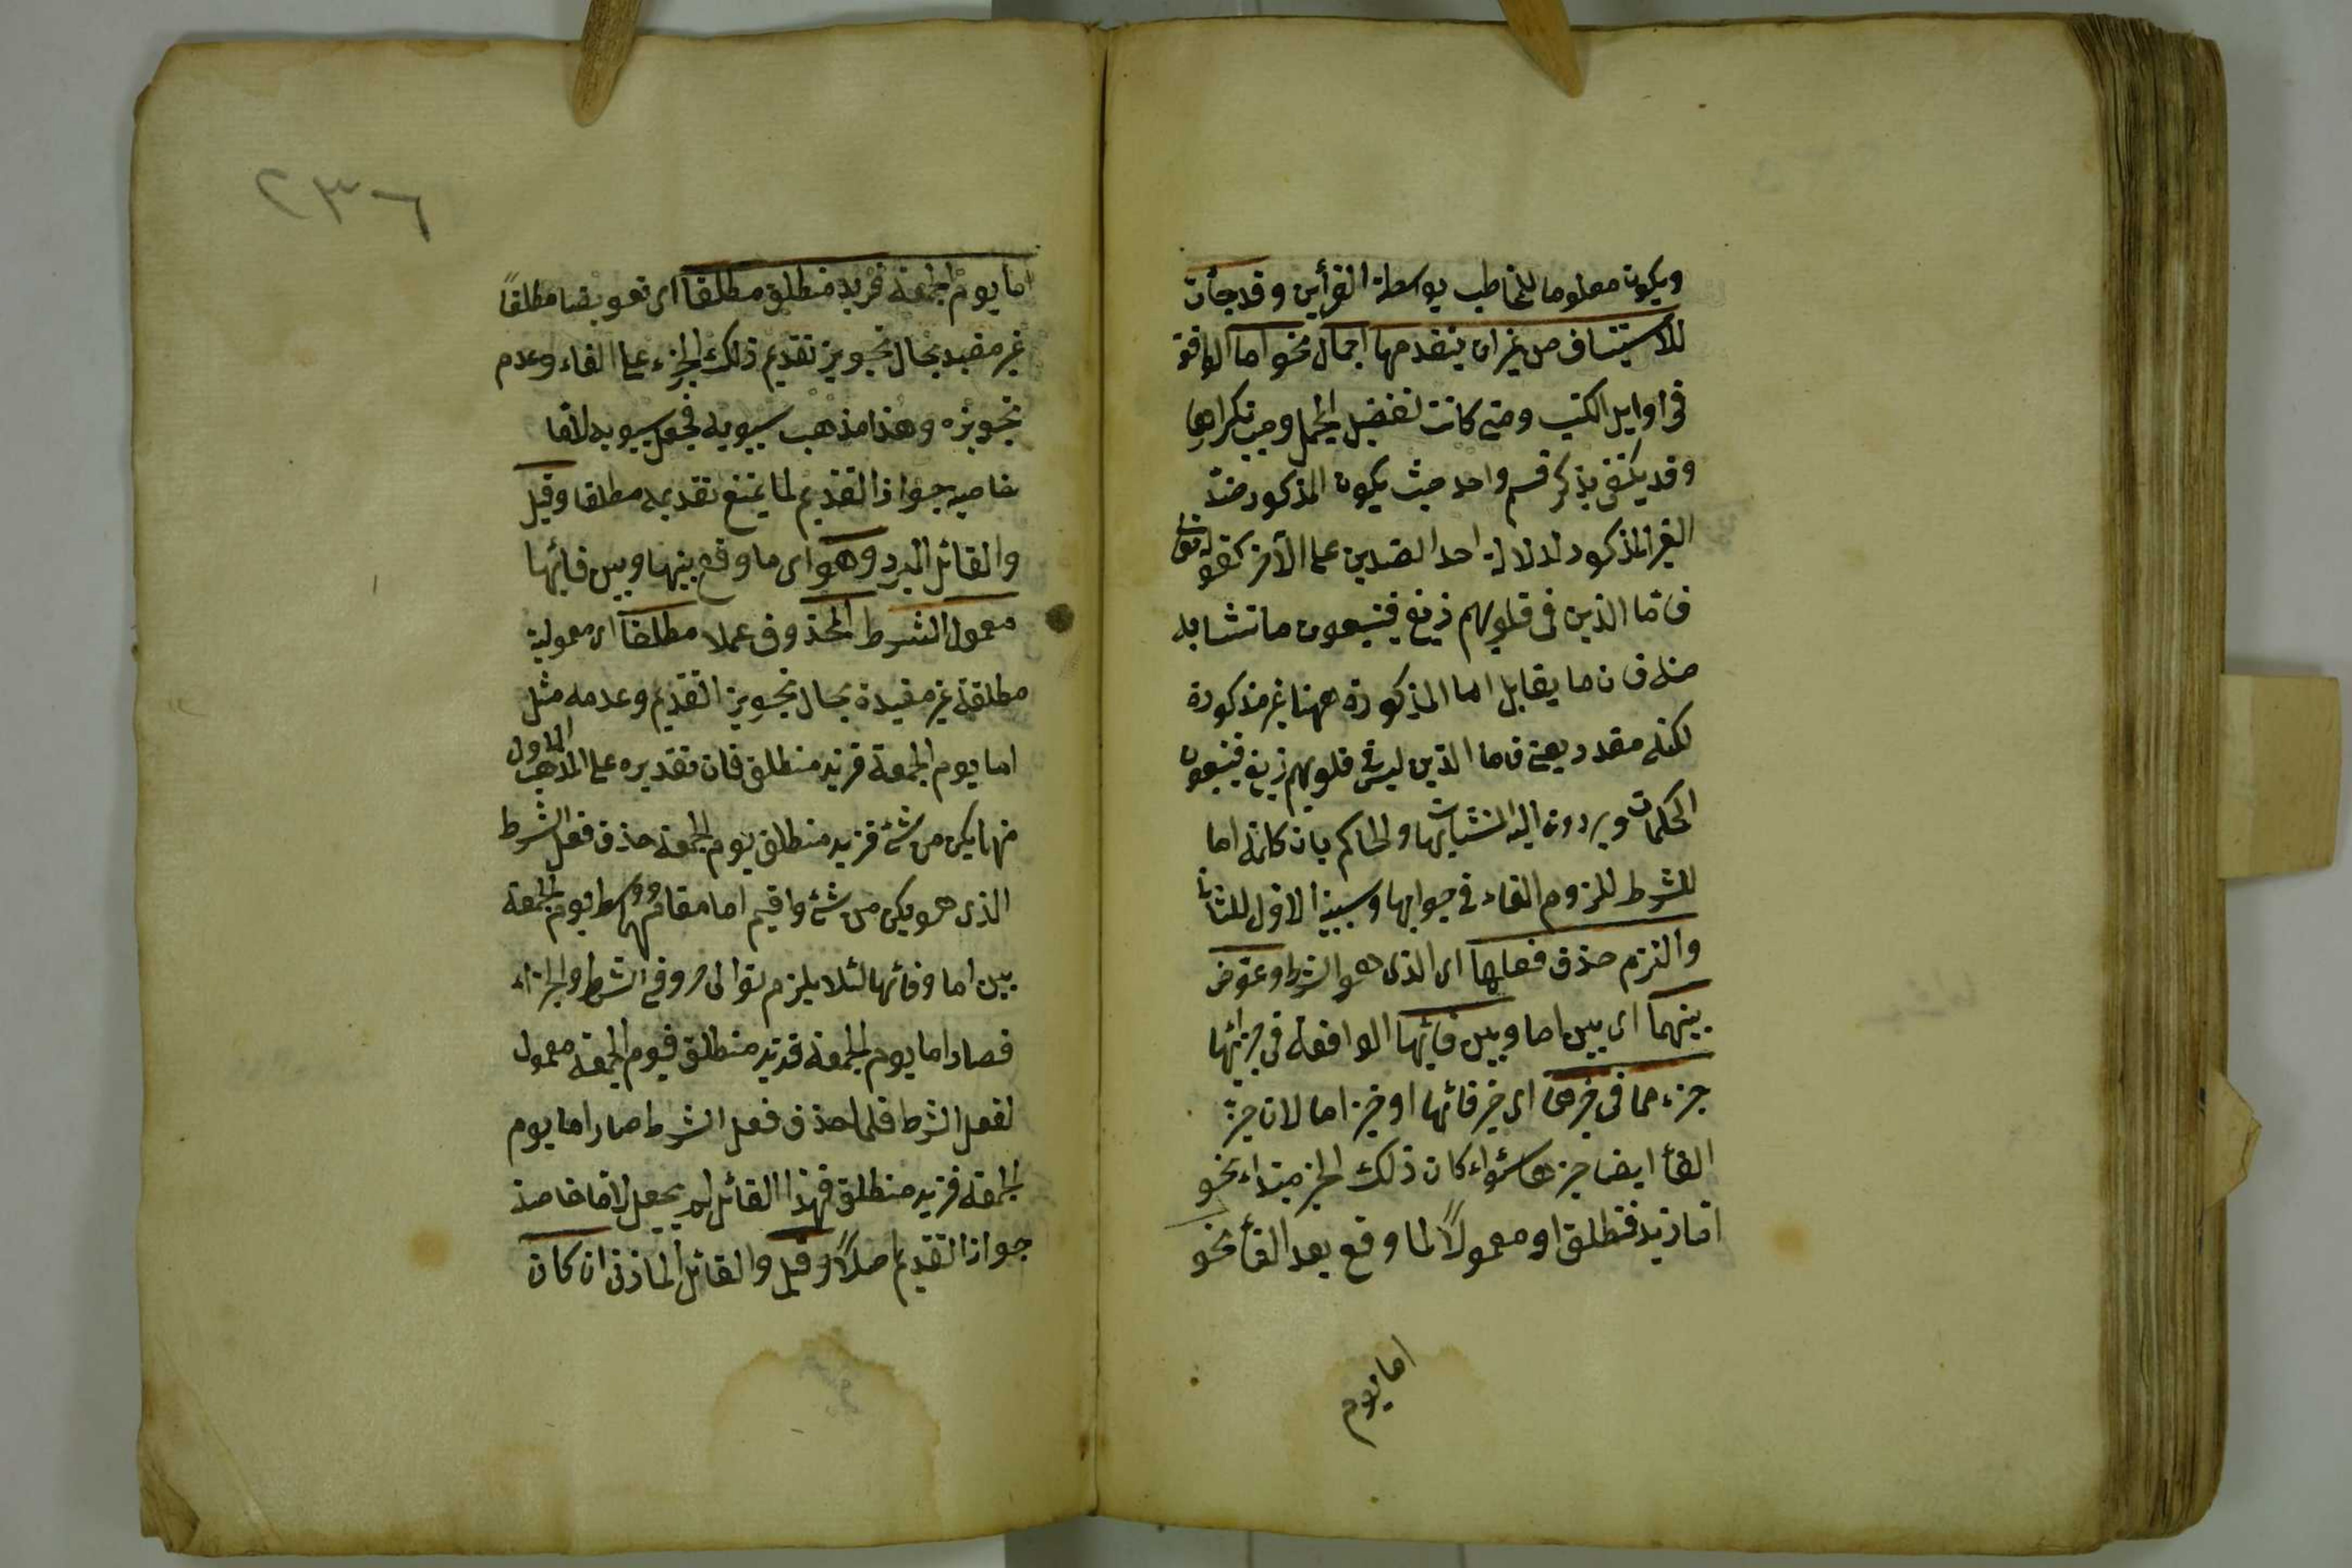 ويكون معلوما للمخاطب بواسطة القرأين وقد جأت
للأستيناف من غير ان يتقدمها اجمال نحو اما الواقعة
فى اوايل الكتب ومتى كانت لتفضيل المجمل وجب تكرارها
وقد يكتفى بذكر قسم واحد حيث يكون المذكور ضد
الغير المذكور لدلالة احد الضدين على الآخر كقوله تعالى
فاما الذين فى قلوبهم زيغ فيتبعون ما تشابه
منه فان ما يقابل اما المذكورة ههنا غير مذكورة
لكنه مقدر يعنى فاما الذين ليس فى قلوبهم زيغ فيتبعون
المحكمات ويردون اليه المتشابهات والحاكم بان كلمة اما
للشرط للزوم الفاء فى جوابها وسببية الاول للثانى
والتزم حذف فعلها اى الذى هو الشرط وعوض
بينهما اى بين اما وبين فائها الواقعة فى جزائها
جزء مما فى حيزها اى حيز فائها او حيز اما لان حيز
الفأ ايضا حيزها سواء كان ذلك الجزء مبتداء نحو
اما زيد فمنطلق او معمولاً لما وقع بعد الفأ نحو
اما يوم
٢٣٦
اما يوم الجمعة فزيد منطلق مطلقا اى تعويضا مطلقاً
غير مقيد بحال تجويز تقديم ذلك الجزء على الفاء وعدم
تجويزه وهذا مذهب سيبويه فجعل سيبويه لأما
خاصية جواز التقديم لما يمتنع تقديمه مطلقا وقيل
والقائل المبرد وهو اى ما وقع بينها وبين فائها
معمول الشرط المحذوف عملا مطلقا اى معمولية
مطلقة غير مقيدة بحال تجويز التقديم وعدمه مثل
اما يوم الجمعة فزيد منطلق فان تقديره على المذهب الاول
مهما يكن من شئ فزيد منطلق يوم الجمعة حذف فعل الشرط
الذى هو يكن من شئ واقيم اما مقام مهما ووسط يوم الجمعة
بين اما وفائها لئلا يلزم توالى حروفى الشرط والجزاء
فصار اما يوم الجمعة فزيد منطلق فيوم الجمعة معمول
لفعل الشرط فلما حذف فعل الشرط صار اما يوم
الجمعة فزيد منطلق فهذا القائل لم يجعل لاما خاصية
جواز التقديم اصلاً وقيل والقائل المازنى ان كان